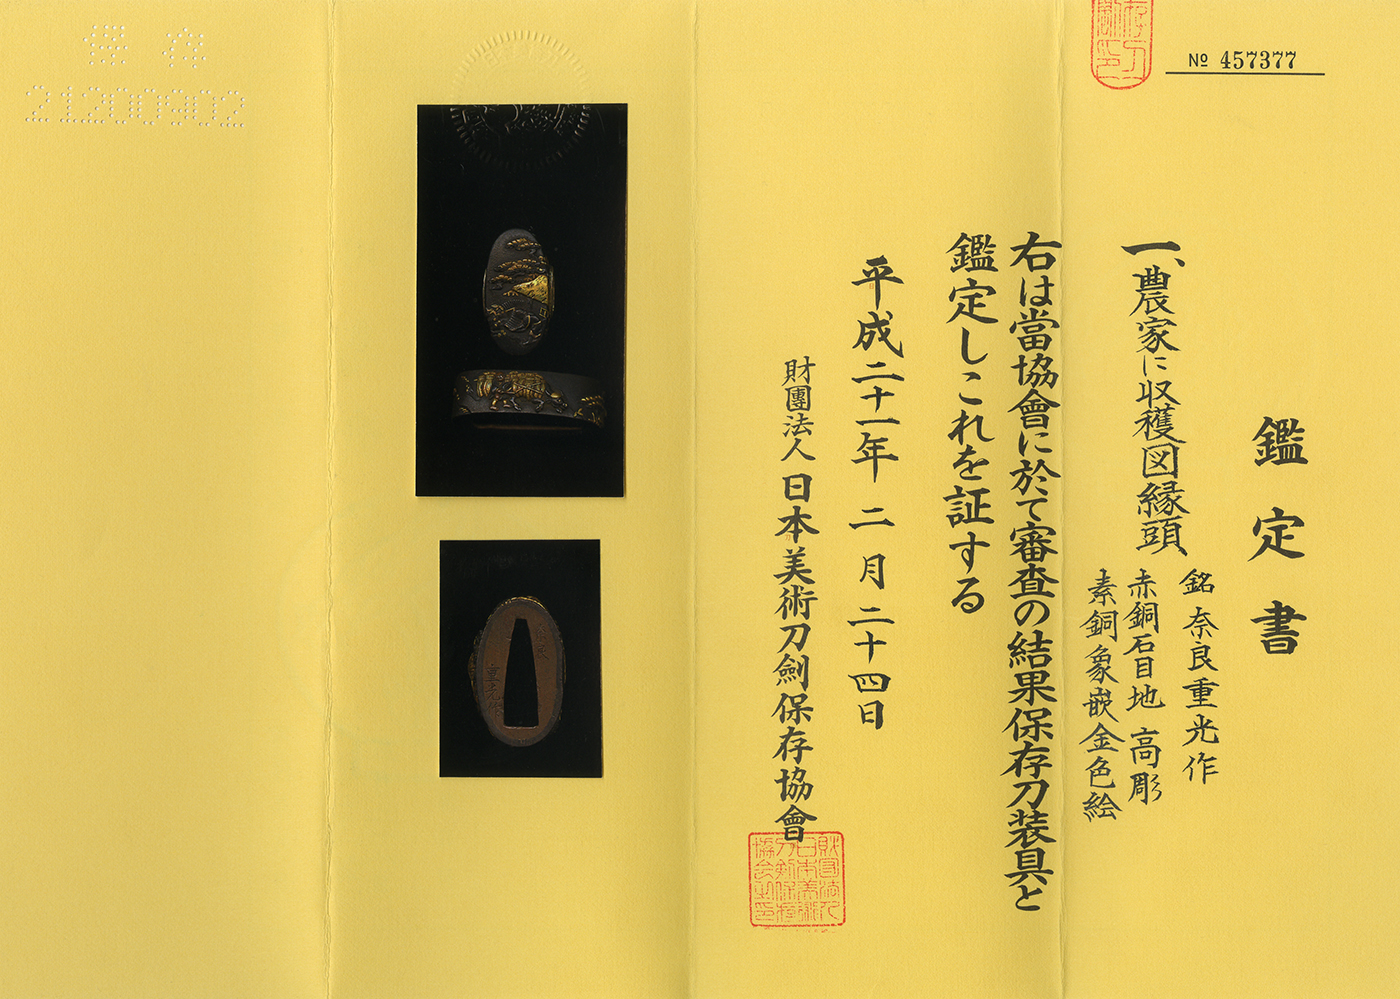 № 457377
鑑定書
一、農家に収穫図縁頭
銘 奈良重光作
赤銅石目地 高彫
素銅象嵌金色絵
右は當協會に於て審査の結果保存刀装具と
鑑定しこれを証する
平成二十一年 二月二十四日
財團法人 日本美術刀劍保存協會
財団法人日本美術刀剣保存協会之印
保存
21200902
重光作